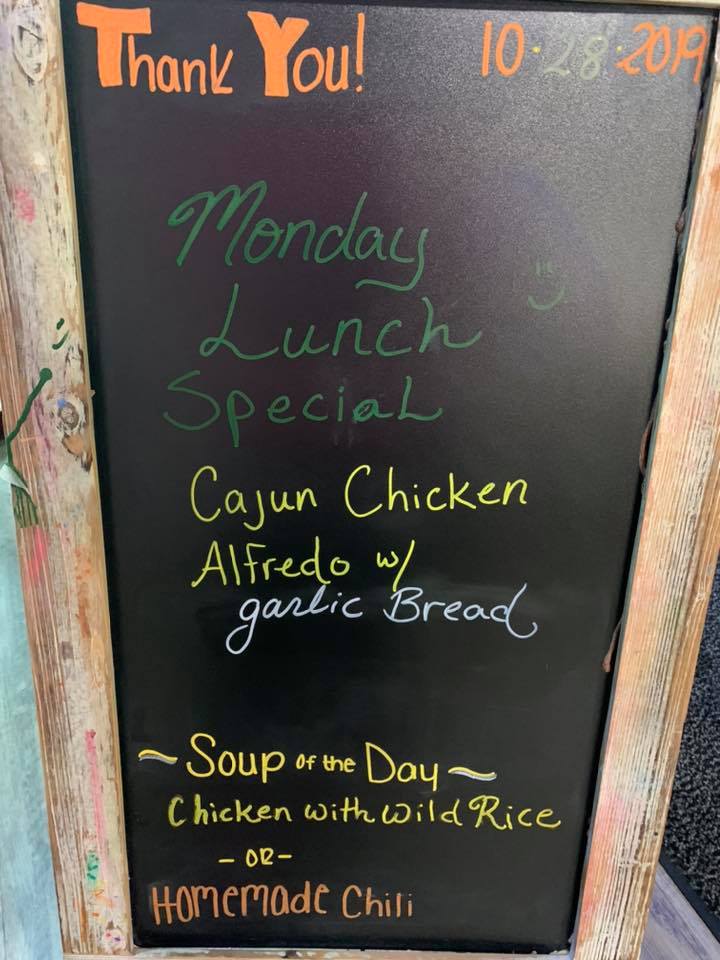 Thank You! 10.28.2019
Monday
Lunch
Special
Cajun Chicken
Alfredo w/
garlic Bread
~ Soup of the Day ~
Chicken with wild Rice
- OR -
Homemade Chili